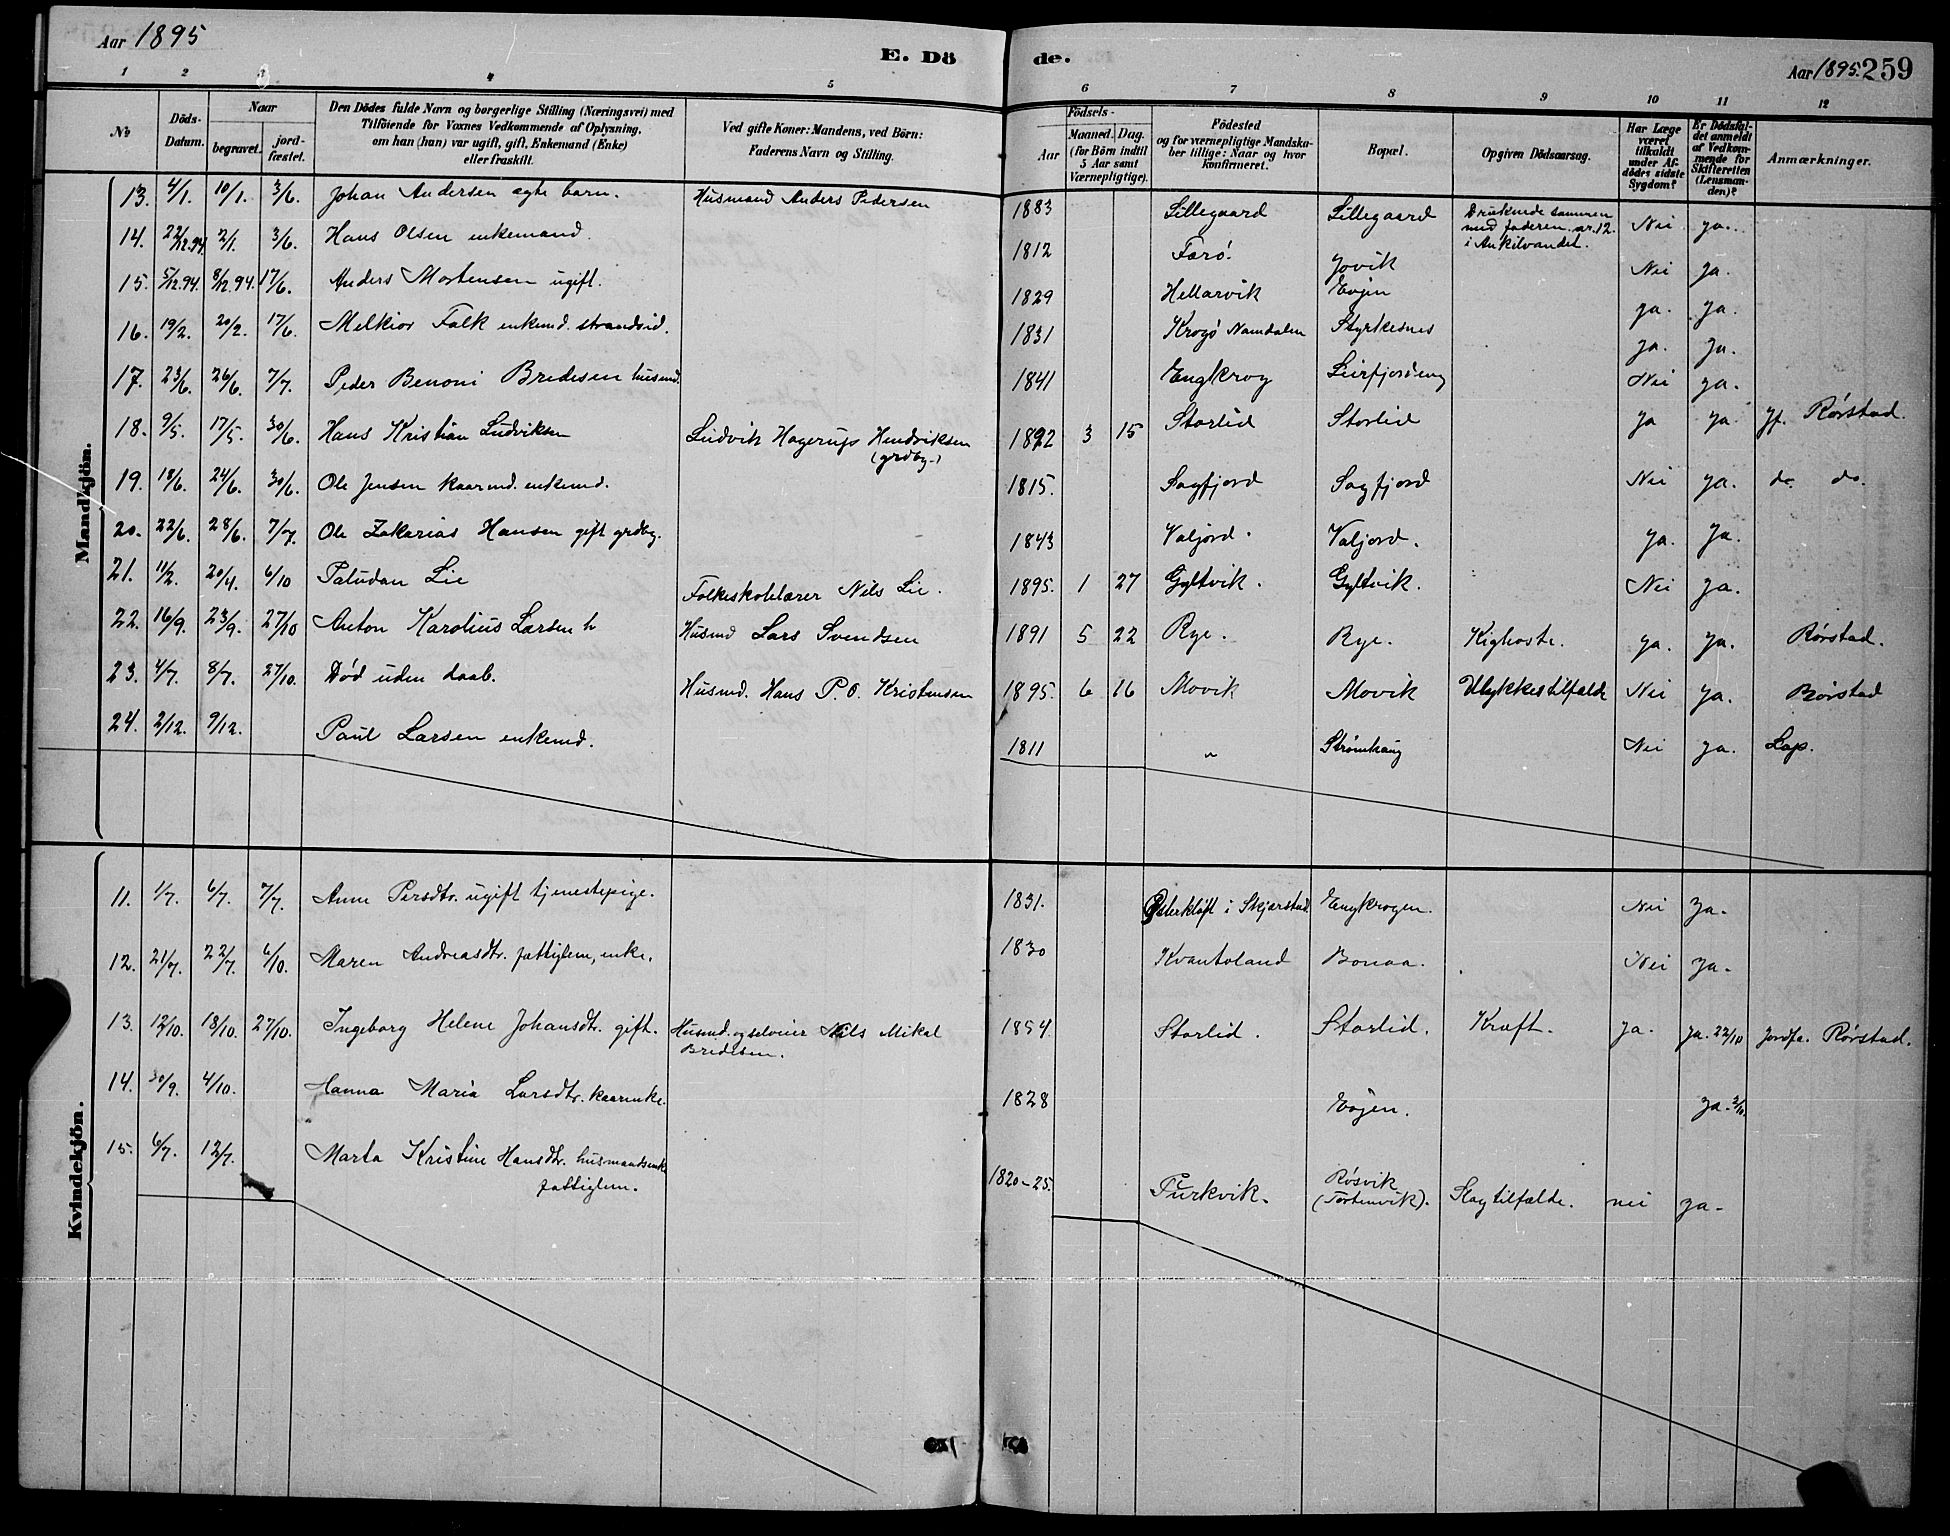 Aar 1895
E. Dö de.
Aar 1895. 259
1 2 3 4 5 6 7 8 9 10 11 12
No
Döds-Datum.
Naar
begravet.
jord-fæstet.
Den Dödes fulde Navn og borgerlige Stilling (Næringsvei) med
Tilföiende for Voxnes Vedkommende af Oplysning,
om han (hun) var ugift, gift, Enkemand (Enke)
eller fraskilt.
Ved gifte Koner: Mandens, ved Börn:
Faderens Navn og Stilling.
Födsels-
Aar
Maaned. Dag.
(for Börn indtil
5 Aar samt
Værnepligtige).
Födested
og for værnepligtige Mandska-
ber tillige: Naar og hvor
konfirmeret.
Bopæl.
Opgiven Dödsaarsag.
Har Læge
været
tilkaldt
under Af-
dödes sidste
Sygdom?
Er Dödsfal-
det anmeldt
af Vedkom-
mende for
Skifteretten
(Lensman-
den)?
Anmærkninger.
Mandkjön.
13. 4/1. 10/1. 3/6. Johan Andersen ægte barn. Husmand Anders Pedersen 1883 Lillegaard Lillegaard Druknede sammen
med faderen nr. 12
i Ankilvandet. Nei ja.
14. 22/12.94. 2/1. 3/6. Hans Olsen enkemand. 1812 Farø. Jovik Nei ja.
15. 5/12.94. 8/12.94. 17/6. Anders Mortensen ugift. 1829 Hellarvik Evjen ja. ja.
16. 19/2. 20/2. 17/6. Melkior Falk enkemd. strandsid. 1831 Krogø Namdalen Styrkesnes ja. ja.
17. 23/6. 26/6. 7/7. Peder Benoni Bredesen husmd. 1841 Engkrog Leirfjordeng Nei ja.
18. 9/5. 17/5. 30/6. Hans Kristian Ludviksen Ludvik Hagerup Hendriksen
(grdbg.) 1892 3 15 Storlid Storlid ja ja. jf. Rørstad.
19. 18/6. 24/6. 30/6. Ole Jensen kaarmd. enkemd. 1815. Sagfjord Sagfjord Nei ja. do. do.
20. 22/6. 28/6. 7/7. Ole Zakarias Hansen gift grdbg. 1843 Valjord. Valjord. ja. ja.
21. 11/2. 20/4. 6/10 Paludan Lie Folkeskolelærer Nils Lie. 1895. 1 27 Gyltvik. Gyltvik. Nei ja.
22. 16/9. 23/9. 27/10 Anton Karolius Larsen Husmd Lars Svendsen 1891 5 22 Rye. Rye. Kighoste. ja. ja. Rørstad.
23. 4/7. 8/7. 27/10. Død uden daab. Husmd. Hans P.O. Kristensen 1895. 6 16 Movik Movik Ulykkestilfælde Nei ja. Rørstad
24. 2/12. 9/12. Paul Larsen enkemd. 1811 " Strømhaug Nei ja. Lap.
Kvindekjön.
11. 1/7. 6/7. 7/7. Anne Persdtr. ugift tjenestepige. 1831. Østerkløft i Skjerstad Engkrogen. Nei ja.
12. 21/7. 22/7. 6/10. Maren Andreasdtr. fattiglem, enke. 1830 Kvantoland Bonaa. Nei ja.
13. 12/10. 18/10. 27/10. Ingeborg Helene Johansdtr. gift. Husmd. og selveier Nils Mikal
Bredesen. 1854. Storlid. Storlid. Kræft. ja. ja. 22/10 jordfæ. Rørstad.
14. 30/9. 4/10. Hanna Maria Larsdtr. kaarenke. 1828 Evjen. ja. 3/10.
15. 6/7. 12/7. Marta Kristine Hansdtr. husmandsenke
fattiglem. 1820-25. Furkvik. Røsvik
(Tørtenvik). Slagtilfælde. nei ja.